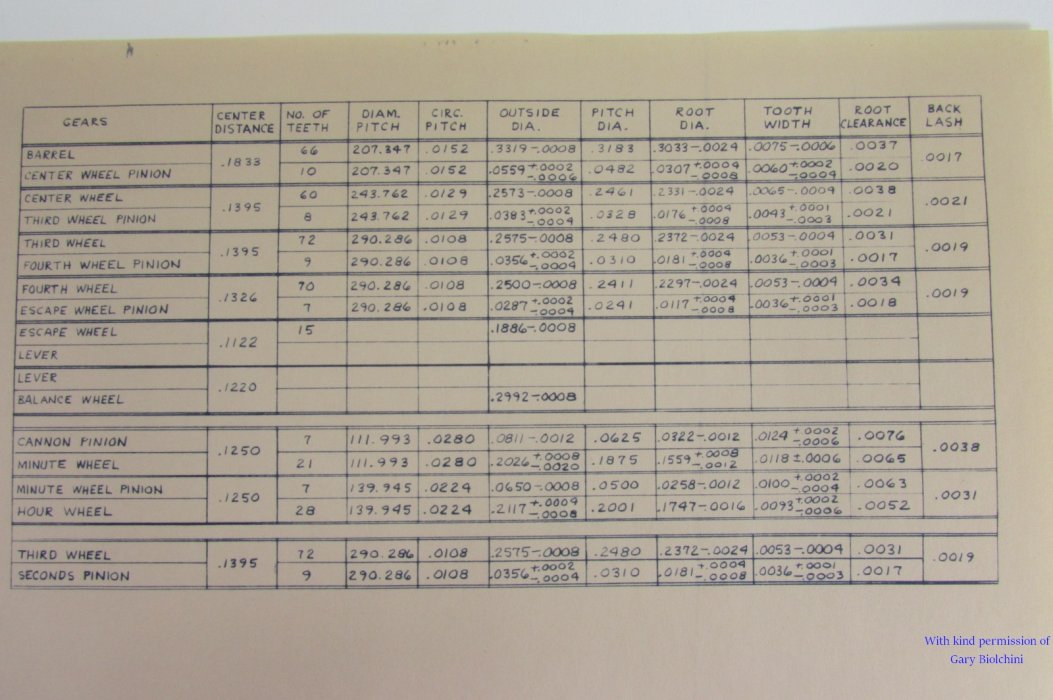 GEARS CENTER DISTANCE NO. OF TEETH DIAM. PITCH CIRC. PITCH OUTSIDE DIA. PITCH DIA. ROOT DIA. TOOTH WIDTH ROOT CLEARANCE BACK LASH
BARREL .1833 66 207.347 .0152 .3319-.0008 .3183 .3033-.0024 .0075-.0006 .0037 .0017
CENTER WHEEL PINION 10 207.347 .0152 .0559+.0002 -.0006 .0482 .0307+.0004 -.0008 .0060+.0002 -.0004 .0020
CENTER WHEEL .1395 60 243.762 .0129 .2573-.0008 .2461 .2331-.0024 .0065-.0004 .0038 .0021
THIRD WHEEL PINION 8 243.762 .0129 .0383+.0002 -.0004 .0328 .0176+.0004 -.0008 .0043+.0001 -.0003 .0021
THIRD WHEEL .1395 72 290.286 .0108 .2575-.0008 .2480 .2372-.0024 .0053-.0004 .0031 .0019
FOURTH WHEEL PINION 9 290.286 .0108 .0356+.0002 -.0004 .0310 .0181+.0004 -.0008 .0036+.0001 -.0003 .0017
FOURTH WHEEL .1326 70 290.286 .0108 .2500-.0008 .2411 .2297-.0024 .0053-.0004 .0034 .0019
ESCAPE WHEEL PINION 7 290.286 .0108 .0287+.0002 -.0004 .0241 .0117+.0004 -.0008 .0036+.0001 -.0003 .0018
ESCAPE WHEEL .1122 15 .1886-.0008
LEVER
LEVER .1220
BALANCE WHEEL .2992-.0008
CANNON PINION .1250 7 111.993 .0280 .0811-.0012 .0625 .0322-.0012 .0124+.0002 -.0006 .0076 .0038
MINUTE WHEEL 21 111.993 .0280 .2026+.0008 -.0020 .1875 .1559+.0008 -.0012 .0118±.0006 .0065
MINUTE WHEEL PINION .1250 7 139.945 .0224 .0650-.0008 .0500 .0258-.0012 .0100+.0002 -.0004 .0063 .0031
HOUR WHEEL 28 139.945 .0224 .2117+.0004 -.0008 .2001 .1747-.0016 .0093+.0002 -.0006 .0052
THIRD WHEEL .1395 72 290.286 .0108 .2575-.0008 .2480 .2372-.0024 .0053-.0004 .0031 .0019
SECONDS PINION 9 290.286 .0108 .0356+.0002 -.0004 .0310 .0181+.0004 -.0008 .0036+.0001 -.0003 .0017
With kind permission of
Gary Biolchini